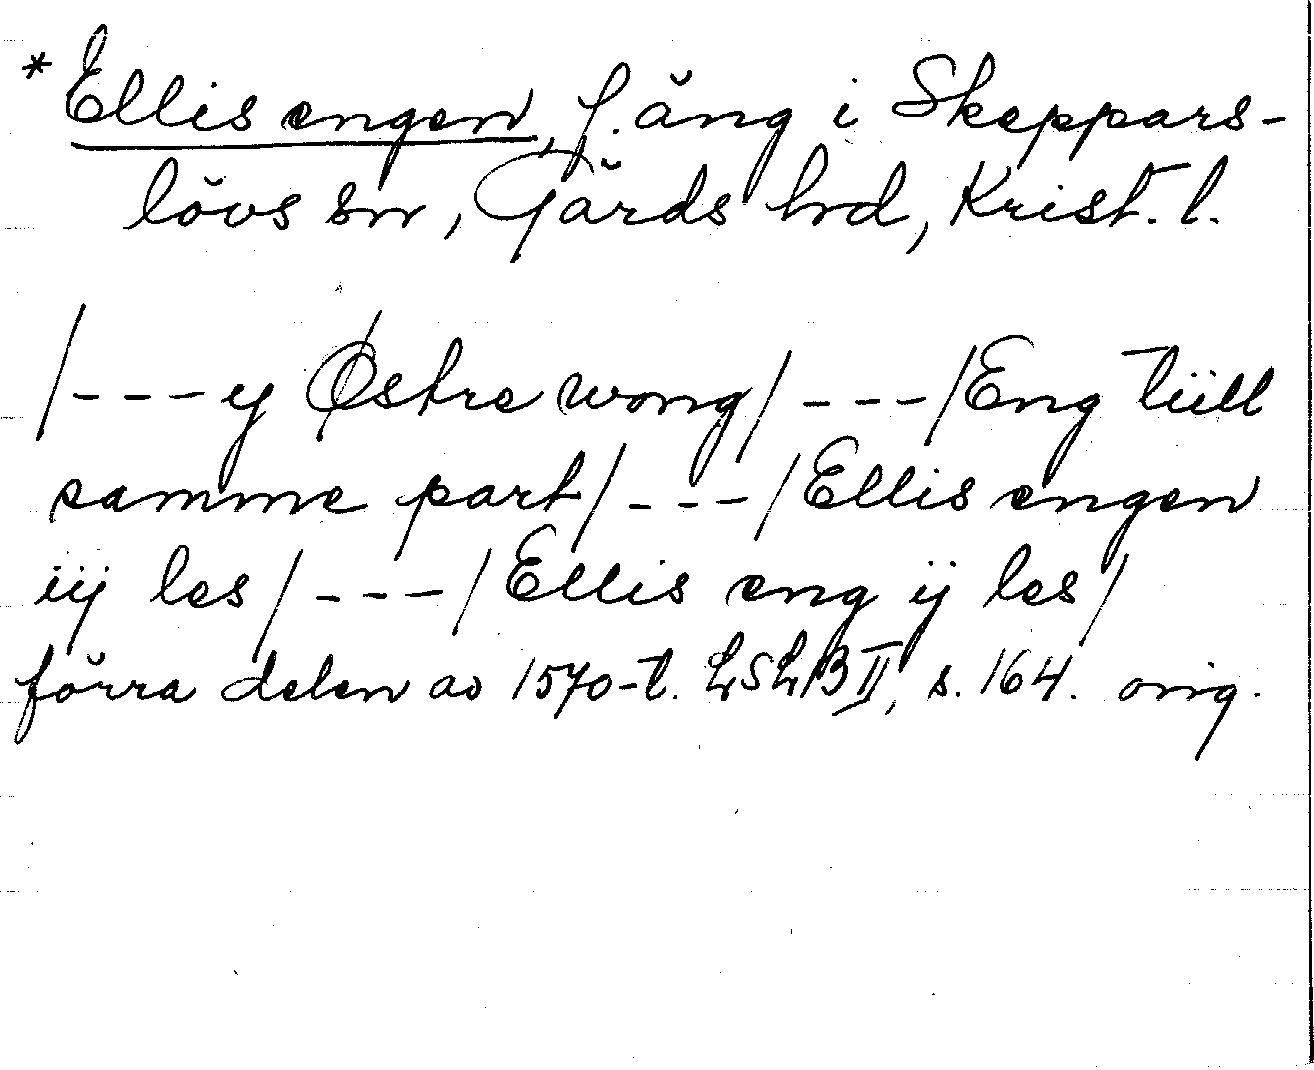 * Ellis engen, f. äng i Skeppars-
lövs sn, Gärds hd, Krist. l.
/---y Østre wong/---/Eng tiill
samme part/---/Ellis engen
iij les/---/Ellis eng ij les/
förra delen av 1570-t. LSLB II, s. 164. orig.